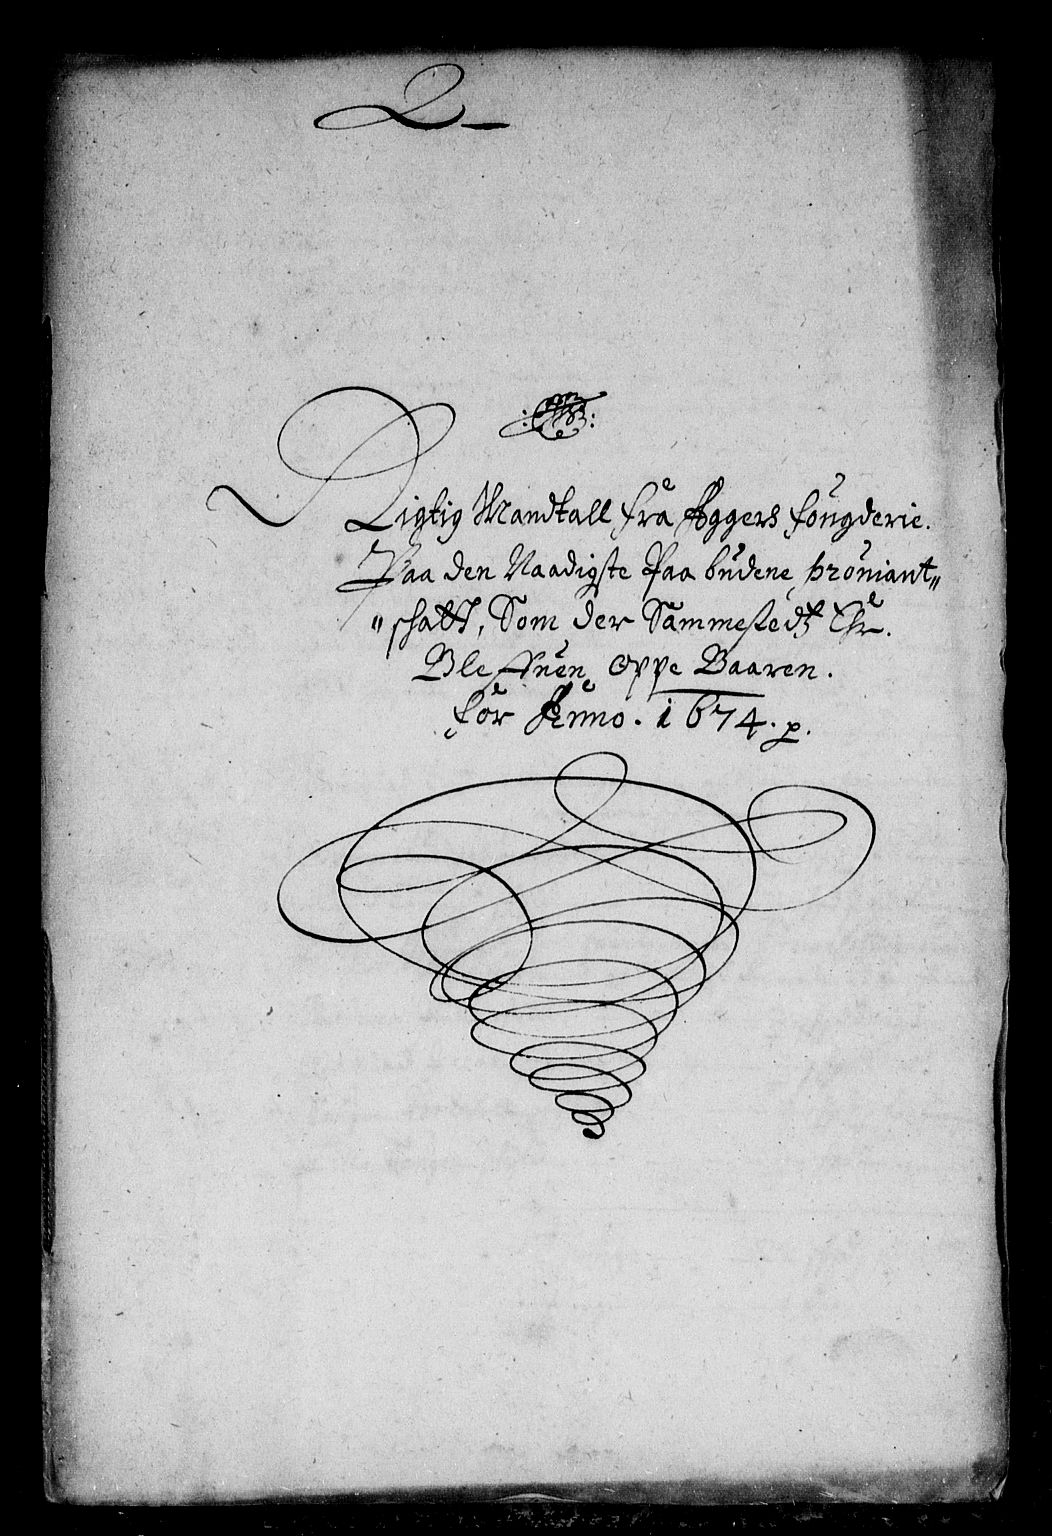 2
Rigtig Mandtall fra Aggers fougderie.
Paa den Naadigste Paa budene prouiant„
„schatt, Som der Sammestedtz Er
Bleffuen oppe Baaren.
for Anno. 1674. p.